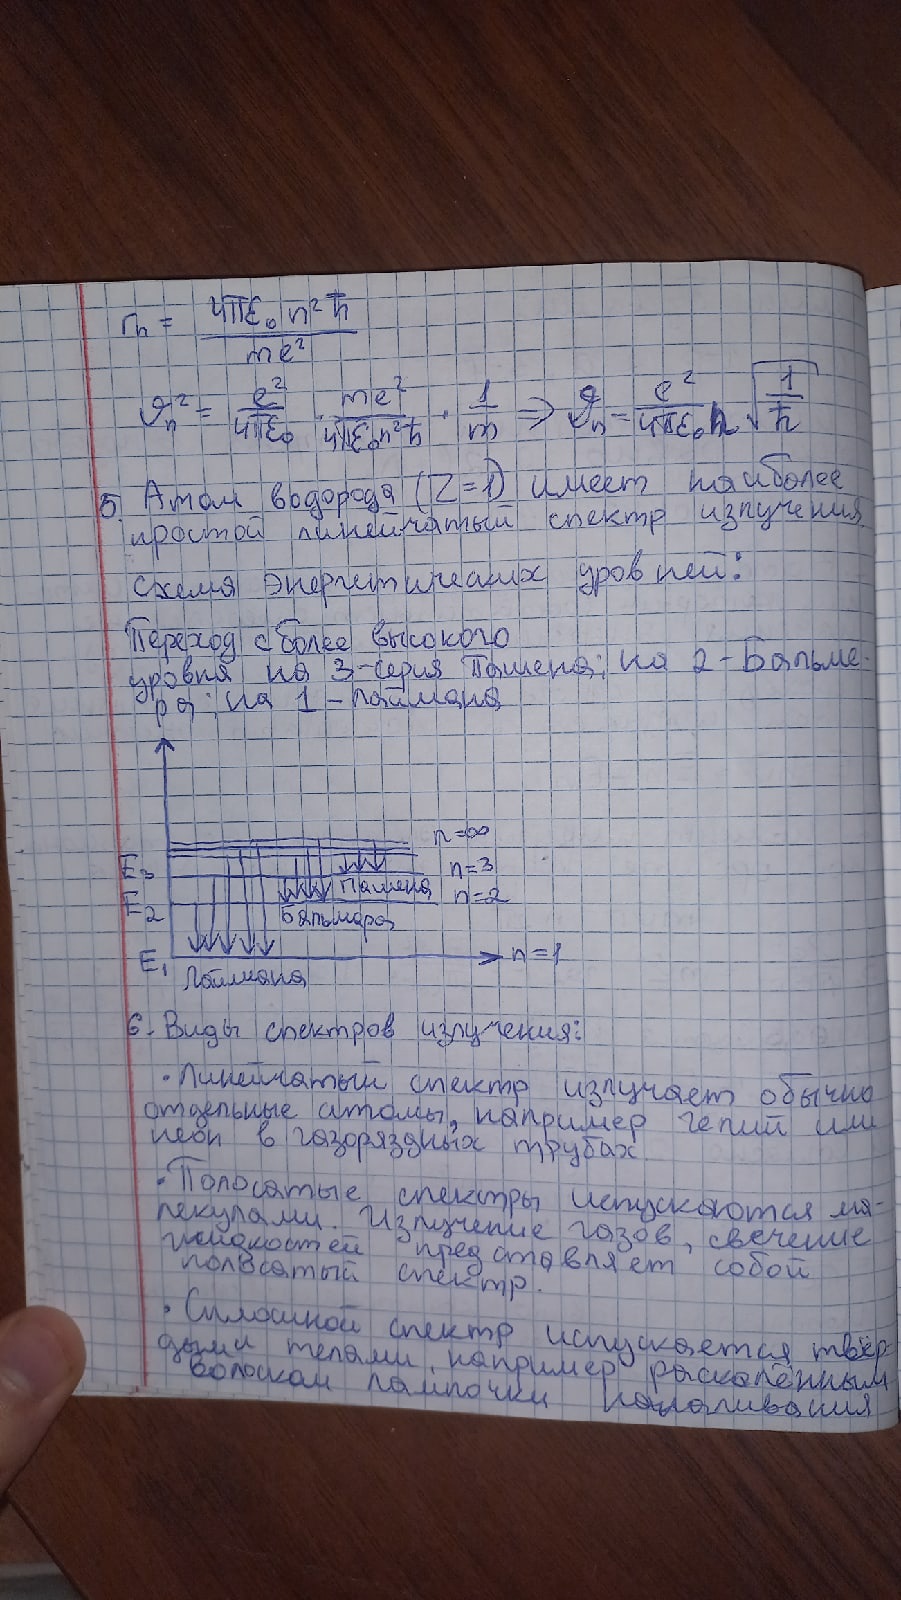 rn = 4πε₀ n² ħ / me²
υn² = e²/4πε₀ · me²/4πε₀n²ħ · 1/m ⇒ υn = e²/4πε₀n √1/ħ
5. Атом водорода (Z=1) имеет наиболее
простой линейчатый спектр излучения
схема энергетических уровней:
Переход с более высокого
уровня на 3-серия Пашена; на 2-Бальме-
ра; на 1-Лаймана
n=∞
E₃ n=3
Пашена n=2
E₂ Бальмера
E₁ n=1
Лаймана
6. Виды спектров излучения:
· Линейчатый спектр излучает обычно
отдельные атомы, например гелий или
неон в газоряздных трубах.
· Полосатые спектры испускаются мо-
лекулами. Излучение газов, свечение
жидкостей представляет собой
полосатый спектр.
· Сплошной спектр испускается твёр-
дыми телами, например раскалённым
волоском лампочки накаливания